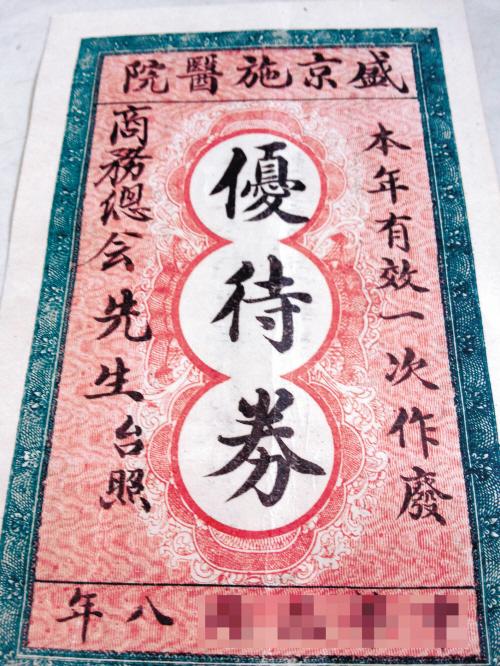 盛京施醫院
本年有效一次作廢
優待券
商務總会先生台照
八年